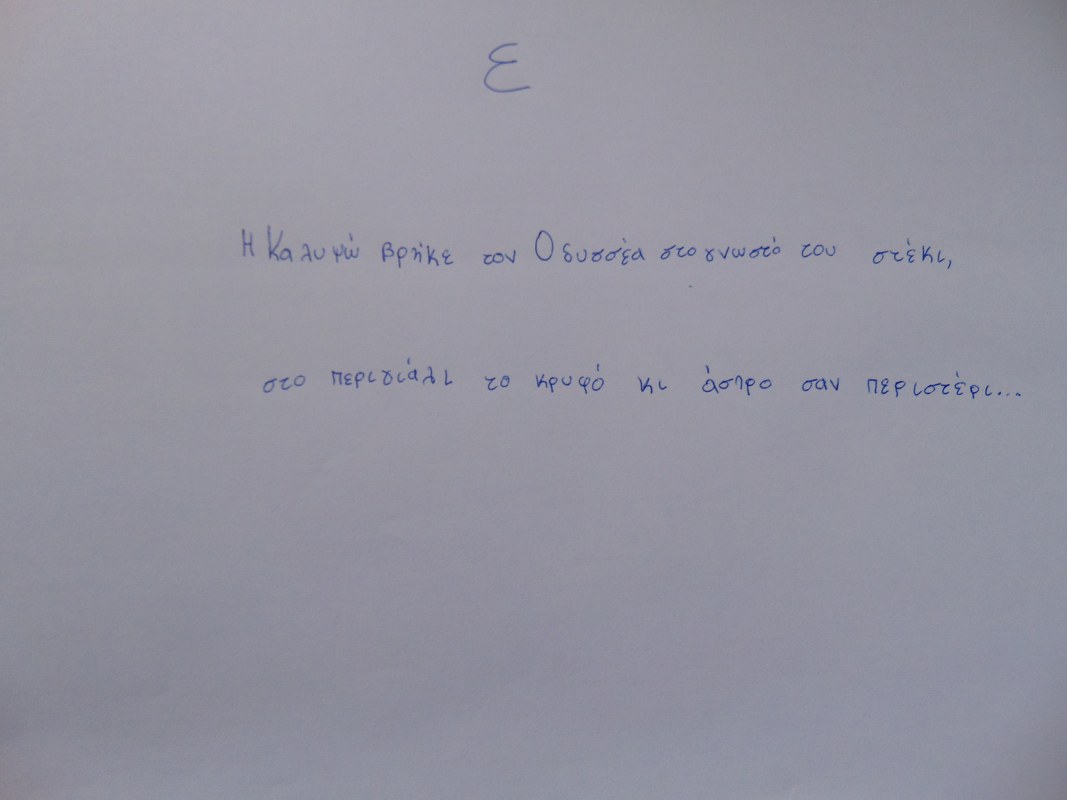 ε
Η Καλυψώ βρήκε τον Οδυσσέα στο γνωστό του στέκι,
στο περιγιάλι το κρυφό κι άσπρο σαν περιστέρι...